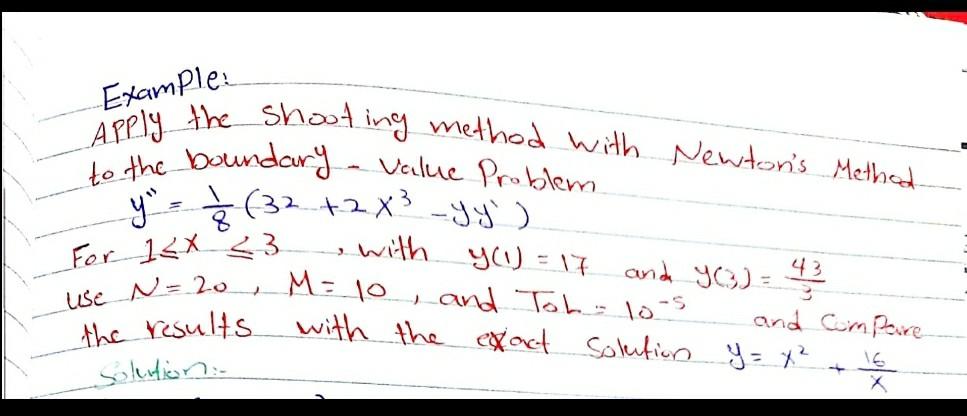 Example:
Apply the shooting method with Newton's Method
to the boundary - value Problem
y'' = 1/8 (32 + 2x³ - yy')
For 1 ≤ x ≤ 3 , with y(1) = 17 and y(3) = 43/3
use N = 20 , M = 10 , and TOL = 10⁻⁵ and Compare
the results with the exact Solution y = x² + 16/x
Solution:-